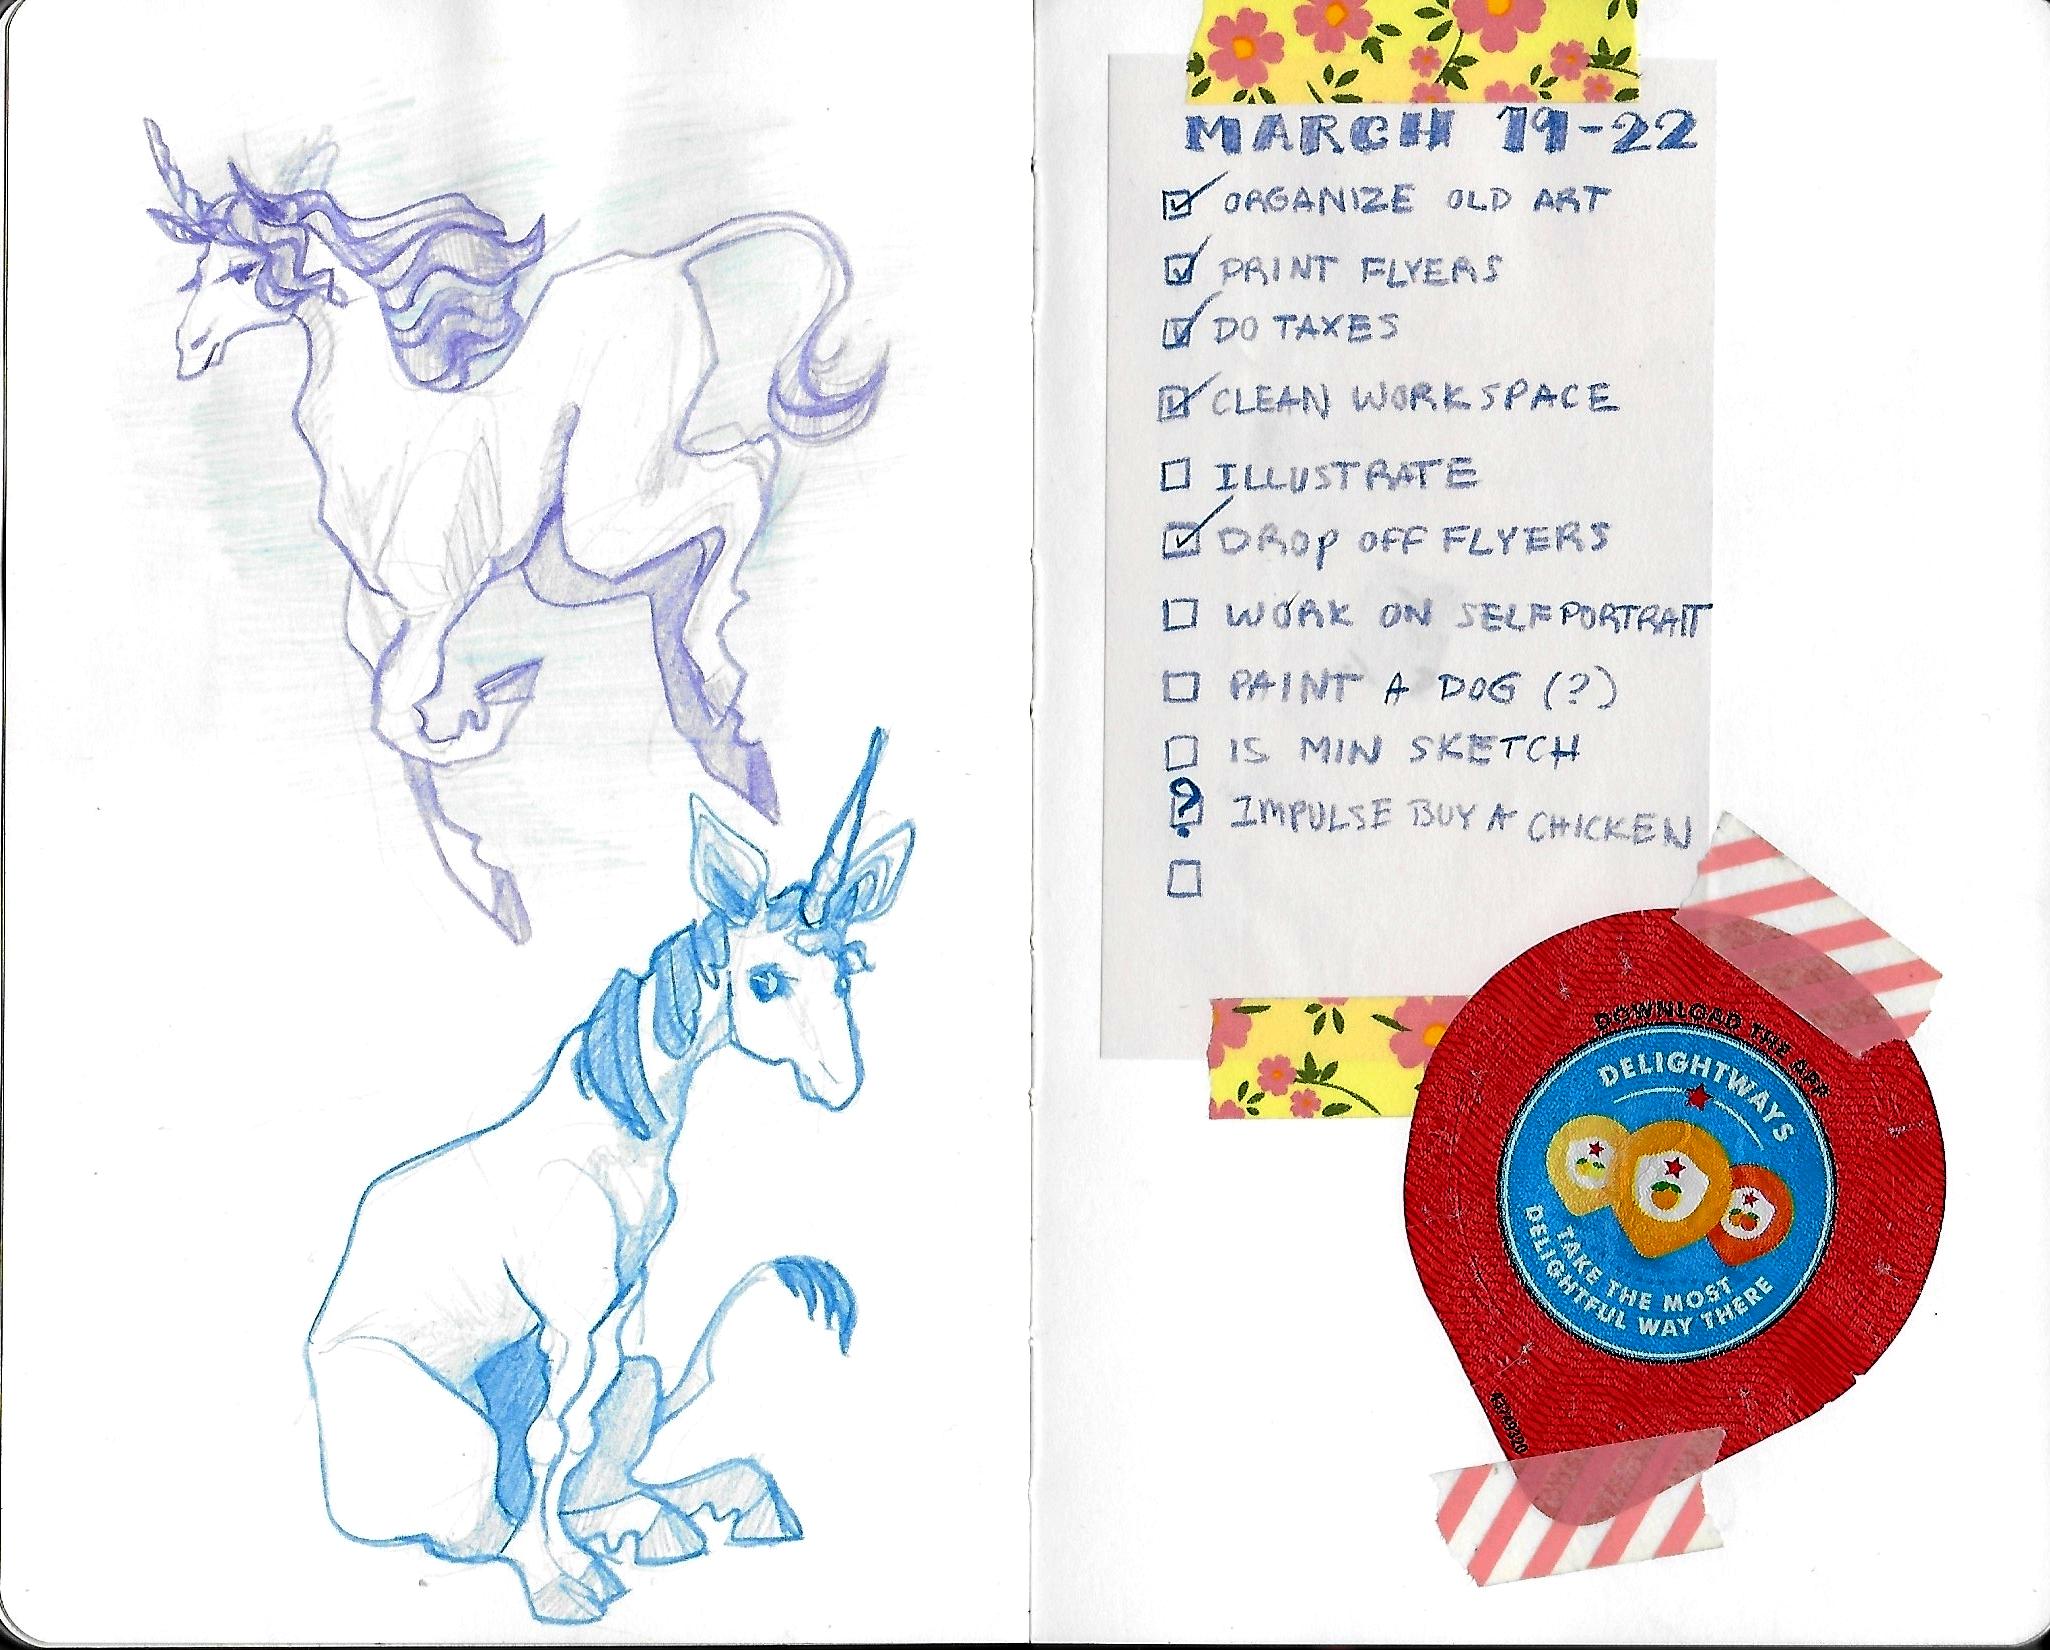 MARCH 19-22
ORGANIZE OLD ART
PRINT FLYERS
DO TAXES
CLEAN WORKSPACE
ILLUSTRATE
DROP OFF FLYERS
WORK ON SELF PORTRAIT
PAINT A DOG (?)
15 MIN SKETCH
? IMPULSE BUY A CHICKEN
DOWNLOAD THE APP
DELIGHTWAYS
TAKE THE MOST
DELIGHTFUL WAY THERE